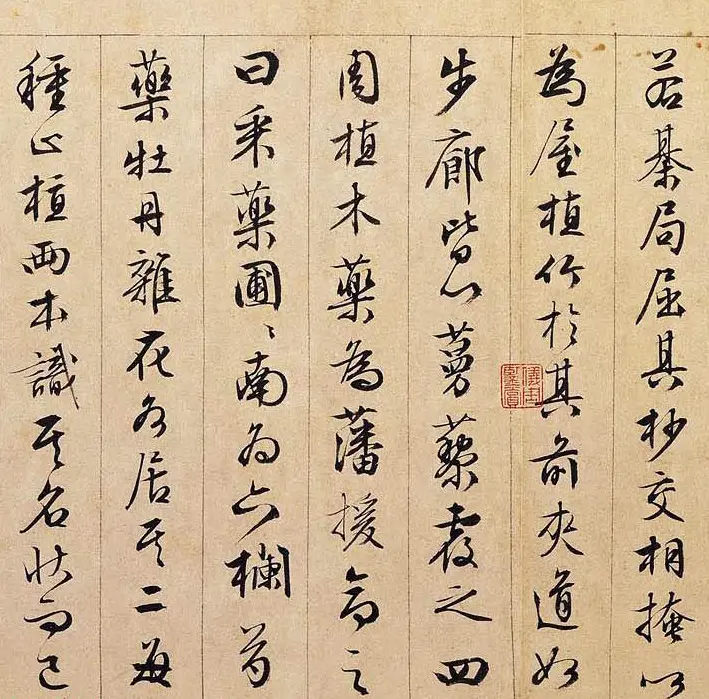 若棊局屈其杪交相掩以
為屋植竹於其前夾道如
步廊皆以蔓藥覆之四
周植木藥為藩援命之
曰采藥圃〻南為六欄芍
藥牡丹雜花各居其二每
種止植兩本識其名狀而已
儀周鑒賞